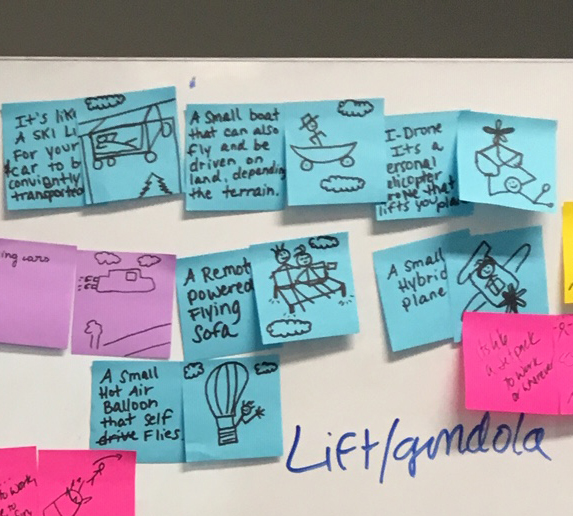 It's like
A SKI Li
For your
car to b
conviently
transported
A Small boat
that can also
fly and be
driven on
land, depending
the terrain.
I-Drone
Its a
ersonal
elicopter
that
lifts you
ing cars
A Remot
powered
Flying
Sofa
A Small
Hybrid
Plane
to work
or wherever
A Small
Hot Air
Balloon
that self
drive Flies.
Lift/gondola
to work,